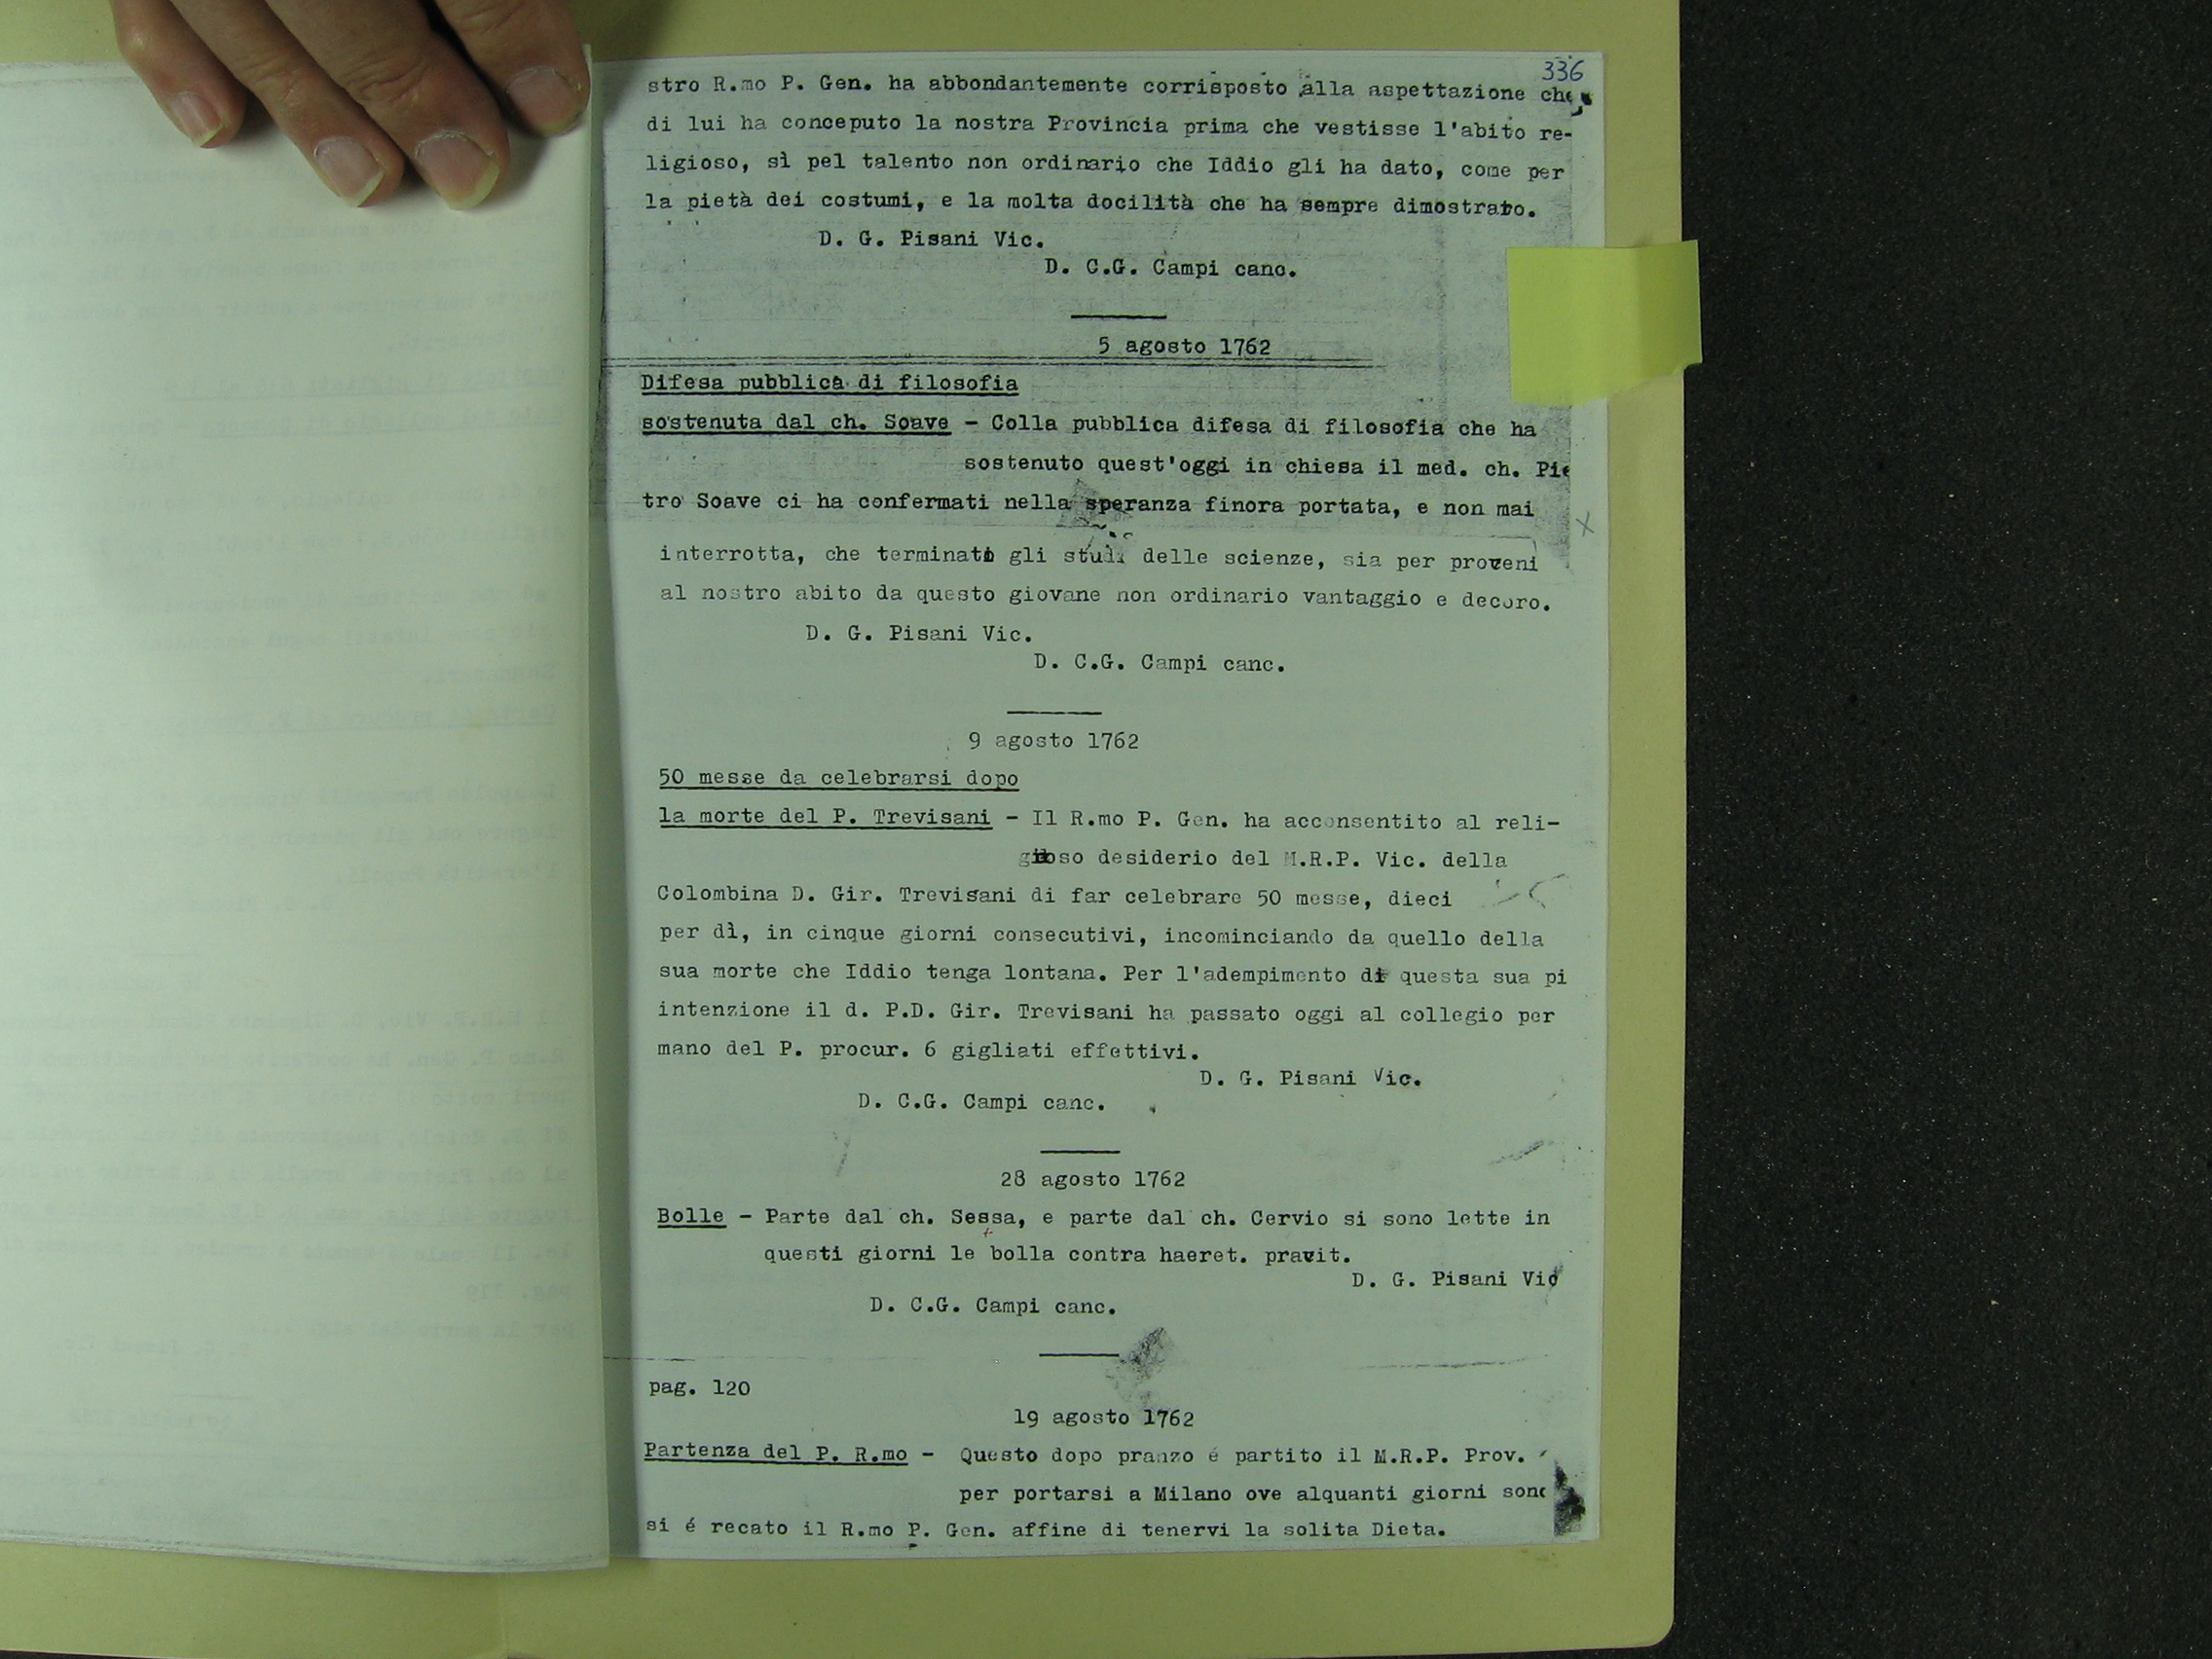 336
stro R.mo P. Gen. ha abbondantemente corrisposto alla aspettazione che
di lui ha conceputo la nostra Provincia prima che vestisse l'abito re-
ligioso, sì pel talento non ordinario che Iddio gli ha dato, come per
la pietà dei costumi, e la molta docilità che ha sempre dimostrato.
D. G. Pisani Vic.
D. C.G. Campi canc.
5 agosto 1762
Difesa pubblica di filosofia
sostenuta dal ch. Soave - Colla pubblica difesa di filosofia che ha
sostenuto quest'oggi in chiesa il med. ch. Pie
tro Soave ci ha confermati nella speranza finora portata, e non mai
interrotta, che terminati gli studi delle scienze, sia per proveni
al nostro abito da questo giovane non ordinario vantaggio e decoro.
D. G. Pisani Vic.
D. C.G. Campi canc.
9 agosto 1762
50 messe da celebrarsi dopo
la morte del P. Trevisani - Il R.mo P. Gen. ha acconsentito al reli-
gioso desiderio del M.R.P. Vic. della
Colombina D. Gir. Trevisani di far celebrare 50 messe, dieci
per dì, in cinque giorni consecutivi, incominciando da quello della
sua morte che Iddio tenga lontana. Per l'adempimento di questa sua pi
intenzione il d. P.D. Gir. Trevisani ha passato oggi al collegio per
mano del P. procur. 6 gigliati effettivi.
D. G. Pisani Vic.
D. C.G. Campi canc.
28 agosto 1762
Bolle - Parte dal ch. Sessa, e parte dal ch. Cervio si sono lette in
questi giorni le bolla contra haeret. pravit.
D. G. Pisani Vic
D. C.G. Campi canc.
pag. 120
19 agosto 1762
Partenza del P. R.mo - Questo dopo pranzo é partito il M.R.P. Prov.
per portarsi a Milano ove alquanti giorni sono
si é recato il R.mo P. Gen. affine di tenervi la solita Dieta.